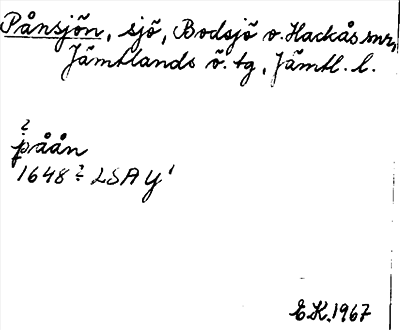 Pånsjön, sjö, Bodsjö o. Hackås snr,
Jämtlands ö. tg, Jämtl. l.
?
påån
1648 ? LSA Y'
E.K. 1967